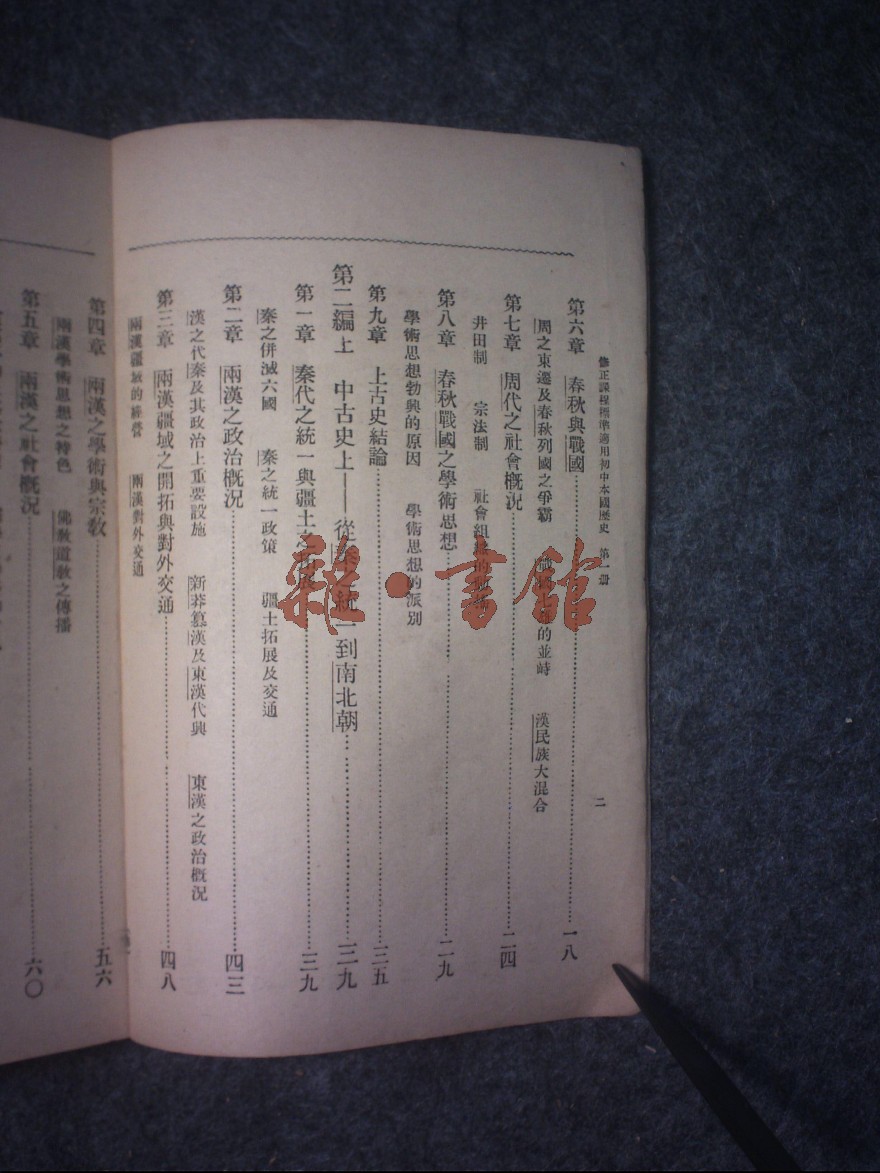 修正課程標準適用初中本國歷史 第一册 二
第六章 春秋與戰國 一八
周之東遷及春秋列國之爭霸 的並峙 漢民族大混合
第七章 周代之社會概況 二四
井田制 宗法制 社會組織的
第八章 春秋戰國之學術思想 二九
學術思想勃興的原因 學術思想的派別
第九章 上古史結論 三五
第二編上 中古史上——從秦之統一到南北朝 三九
第一章 秦代之統一與疆土之拓展 三九
秦之併滅六國 秦之統一政策 疆土拓展及交通
第二章 兩漢之政治概況 四三
漢之代秦及其政治上重要設施 新莽篡漢及東漢代興 東漢之政治概況
第三章 兩漢疆域之開拓與對外交通 四八
兩漢疆域的經營 兩漢對外交通
第四章 兩漢之學術與宗教 五六
兩漢學術思想之特色 佛教道教之傳播
第五章 兩漢之社會概況 六〇
雜·書館